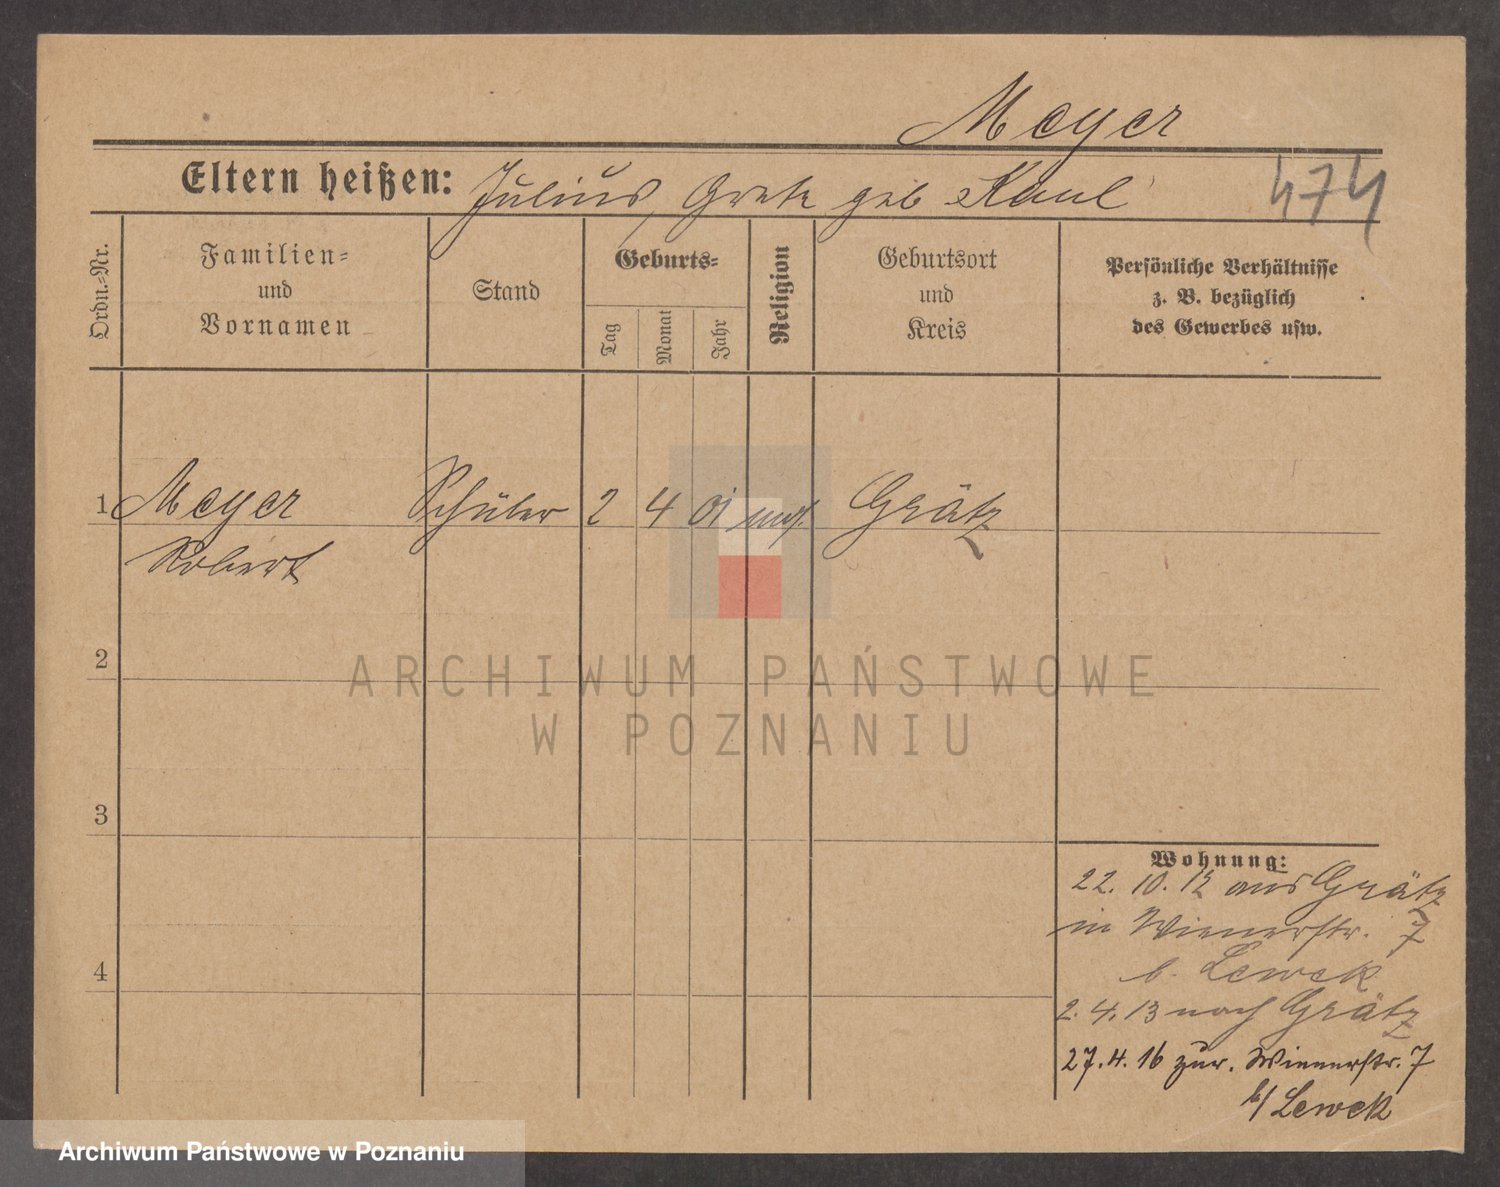 Meyer
Eltern heißen: Julius, Grete geb Kaul
474
Ordn.=Nr.
Familien=
und
Vornamen
Stand
Geburts=
Tag
Monat
Jahr
Religion
Geburtsort
und
Kreis
Persönliche Verhältnisse
z. B. bezüglich
des Gewerbes usw.
1 Meyer Schüler 2 4 01 Grätz
Robert
2
3
4
Wohnung:
22. 10. 12 aus Grätz
in Wienerstr. 7
b. Lewek
2. 4. 13 nach Grätz
27. 4. 16 zur. Wienerstr. 7
b/ Lewek
ARCHIWUM PAŃSTWOWE
W POZNANIU
Archiwum Państwowe w Poznaniu